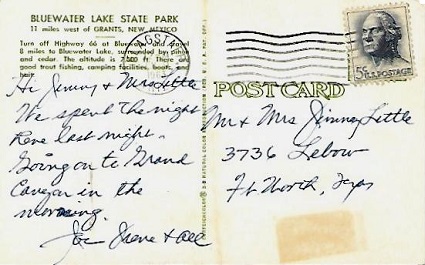 BLUEWATER LAKE STATE PARK
11 miles west of GRANTS, NEW MEXICO
Turn off Highway 66 at Bluewater and travel
8 miles to Bluewater Lake, surrounded by piñon
and cedar. The altitude is 7,500 ft. There are
good trout fishing, camping facilities, boats, and
bait.
Hi Jimmy & Mrs Little
We spent the night
here last night.
Going on to Grand
Canyon in the
morning.
Joe Irene & all
POST CARD
5¢ U.S. POSTAGE
Mr & Mrs Jimmy Little
3736 Lebow
Ft Worth, Texas